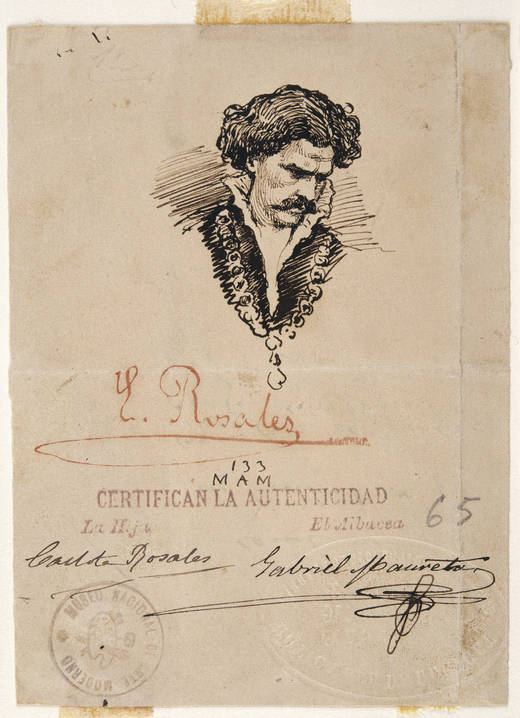 E. Rosales
133
MAM
CERTIFICAN LA AUTENTICIDAD
La Hija El Albacea
65
Carlota Rosales Gabriel Maureta
MUSEO NACIONAL DE ARTE MODERNO